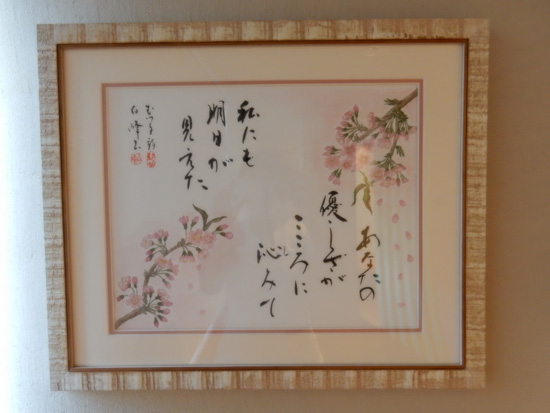 あなたの
優しさが
こころに
沁みて
私にも
明日が
見えた